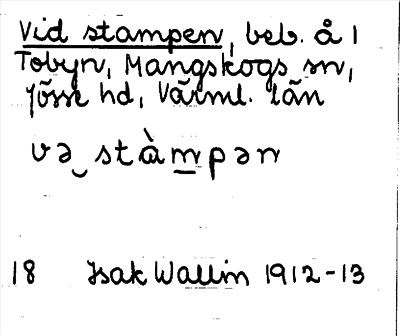 Vid stampen, beb. å 1
Tobyn, Mangskogs sn,
Jösse hd, Värml. län
və‿stàm̲pən
18 Isak Wallin 1912-13